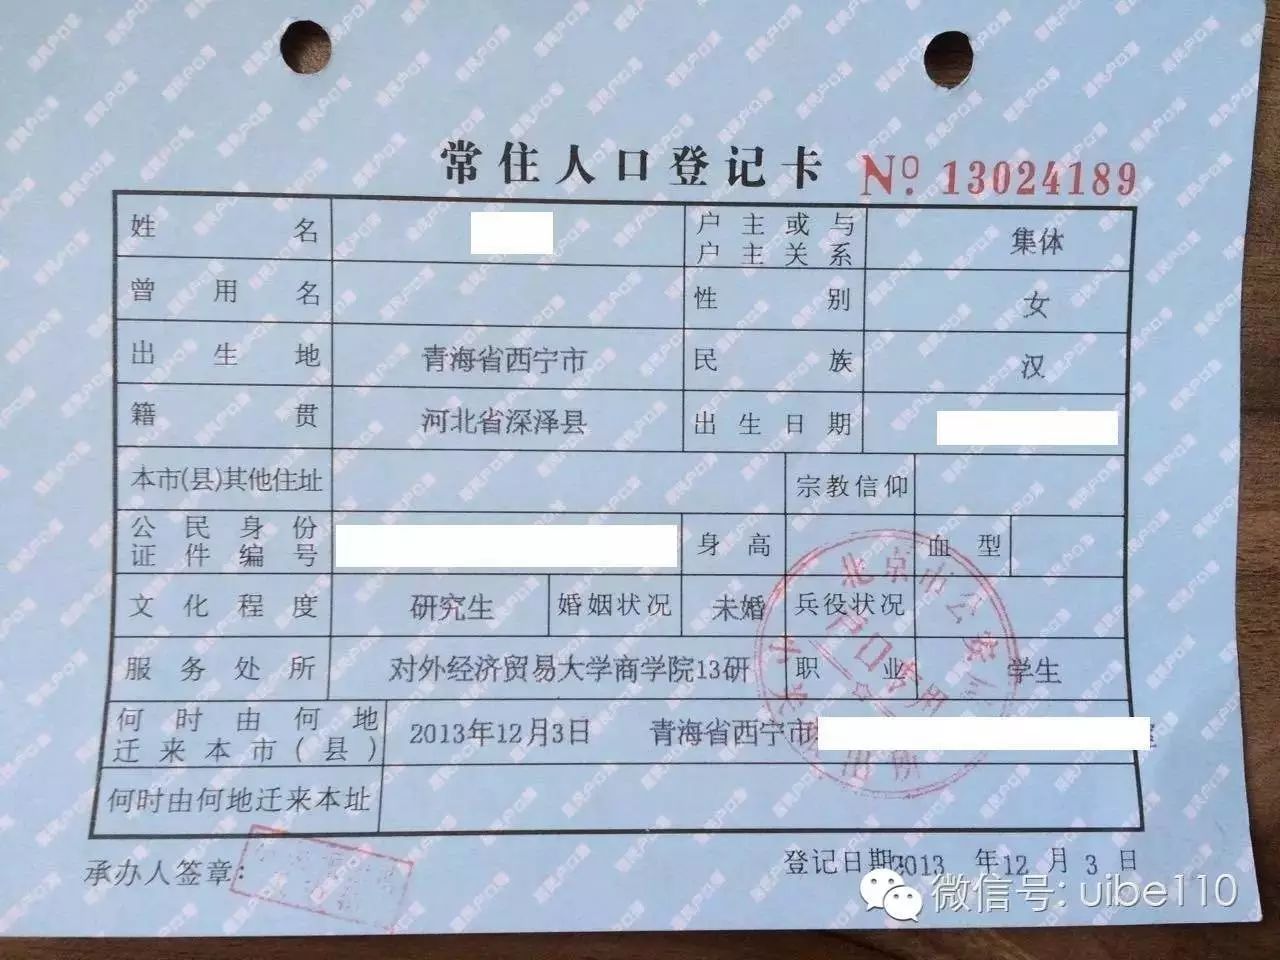 常住人口登记卡 №. 13024189
姓名 户主或与户主关系 集体
曾用名 性别 女
出生地 青海省西宁市 民族 汉
籍贯 河北省深泽县 出生日期
本市(县)其他住址 宗教信仰
公民身份证件编号 身高 血型
文化程度 研究生 婚姻状况 未婚 兵役状况
服务处所 对外经济贸易大学商学院13研 职业 学生
何时由何地迁来本市(县) 2013年12月3日 青海省西宁市
何时由何地迁来本址
承办人签章:
登记日期:2013 年 12 月 3 日
北京市公安
户口专用
出所
微信号: uibe110